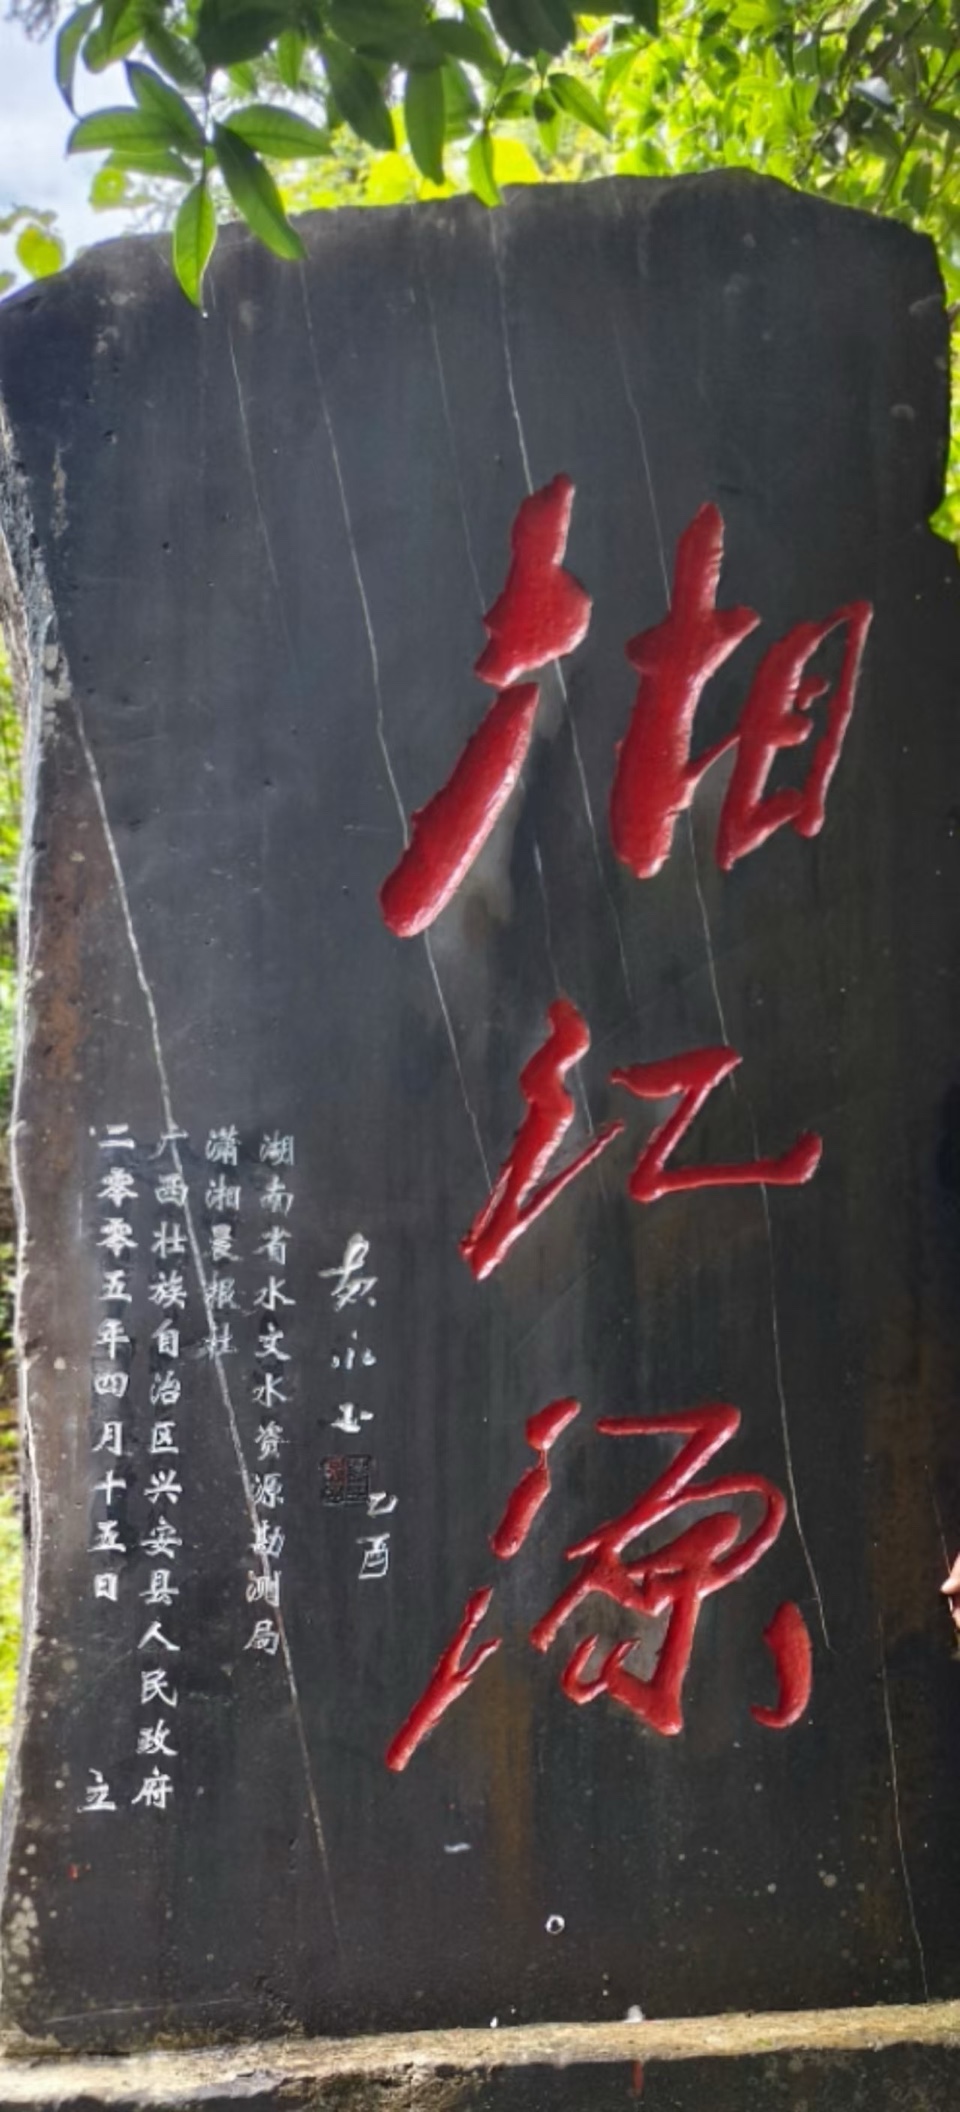 湘江源
黄永玉
乙酉
湖南省水文水资源勘测局
潇湘晨报社
广西壮族自治区兴安县人民政府
二零零五年四月十五日 立